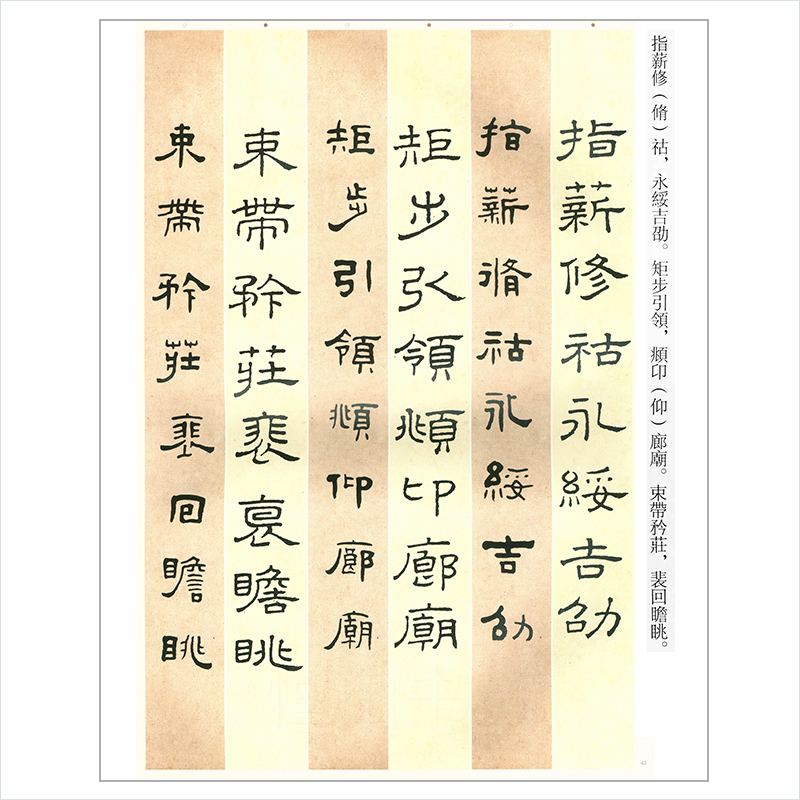 指薪修（脩）祜，永綏吉劭。矩步引領，頫卬（仰）廊廟。束帶矜莊，裴回瞻眺。
指薪修祜永綏吉劭
指薪脩祜永綏吉劭
矩步引領頫卬廊廟
矩步引領頫仰廊廟
束帶矜莊裴瞻眺
束帶矜莊裴回瞻眺